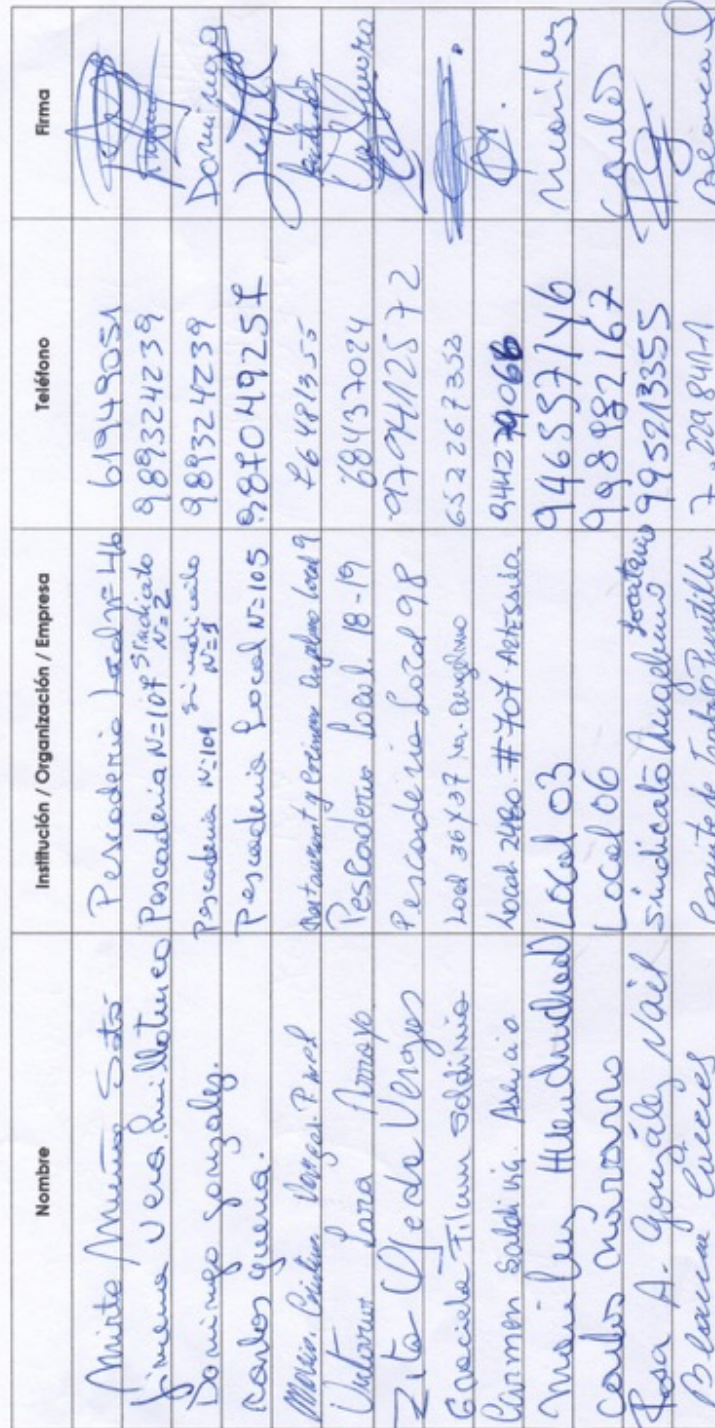 Nombre Institución / Organización / Empresa Teléfono Firma
Mirta Muñoz Soto Pescaderia Local Nº 46 61949051
Jimena Vera Huillotunco Pescaderia N=107 Sindicato N=2 989324239
Domingo Gonzalez. Pescaderia N=109 Sindicato N=1 989324239 Domingo
Carlos guena. Pescaderia Local N=105
Vargas Local 9
Lara Arroyo Pescaderia Local. 18-19 68437024
Zita Ojeda Vargas Pescaderia Local 98 979412572
Graciela Filcun Saldivia Local 36 y 37 652267352
Carmen Saldivia. Asencio Local #707 Artesania
Mariluz Local 03 946557146 Mariluz
Carlos Navarro Local 06 998982167 Carlos
Rosa A. González Nail Sindicato Angelmo Locatario 995213355
Blanca Cáceres Comite de Trabajo Puntilla Blanca